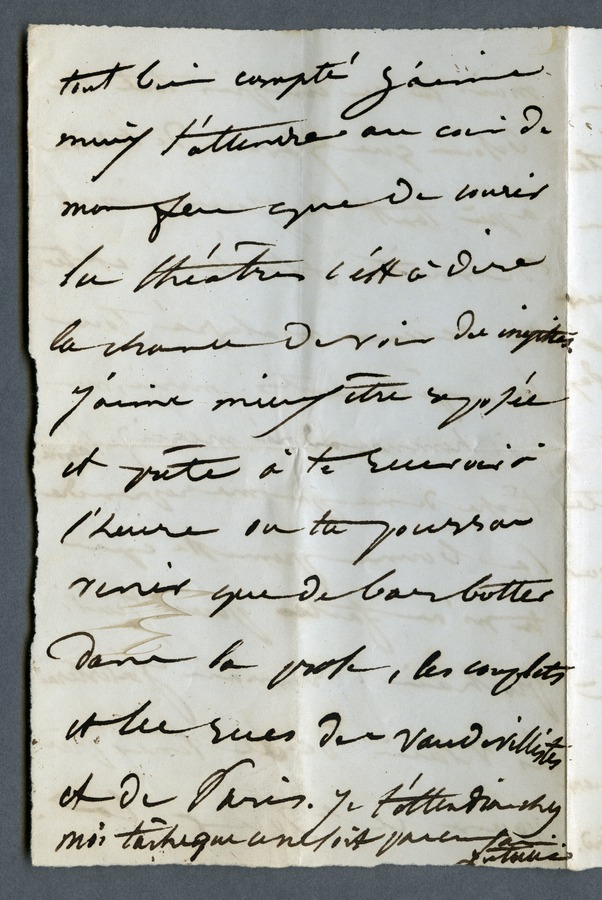 tout bien compté j'aime
mieux t'attendre au coin de
mon feu que de courir
les théâtres c'est à dire
la chance de voir des inepties.
j'aime mieux être reposée
et prête à te recevoir à
l'heure où tu pourras
venir que de barbotter
dans la prose, les couplets
et les rues des vaudevillistes
et de Paris. Je t'attendrai chez
moi tâche que ce ne soit pas en